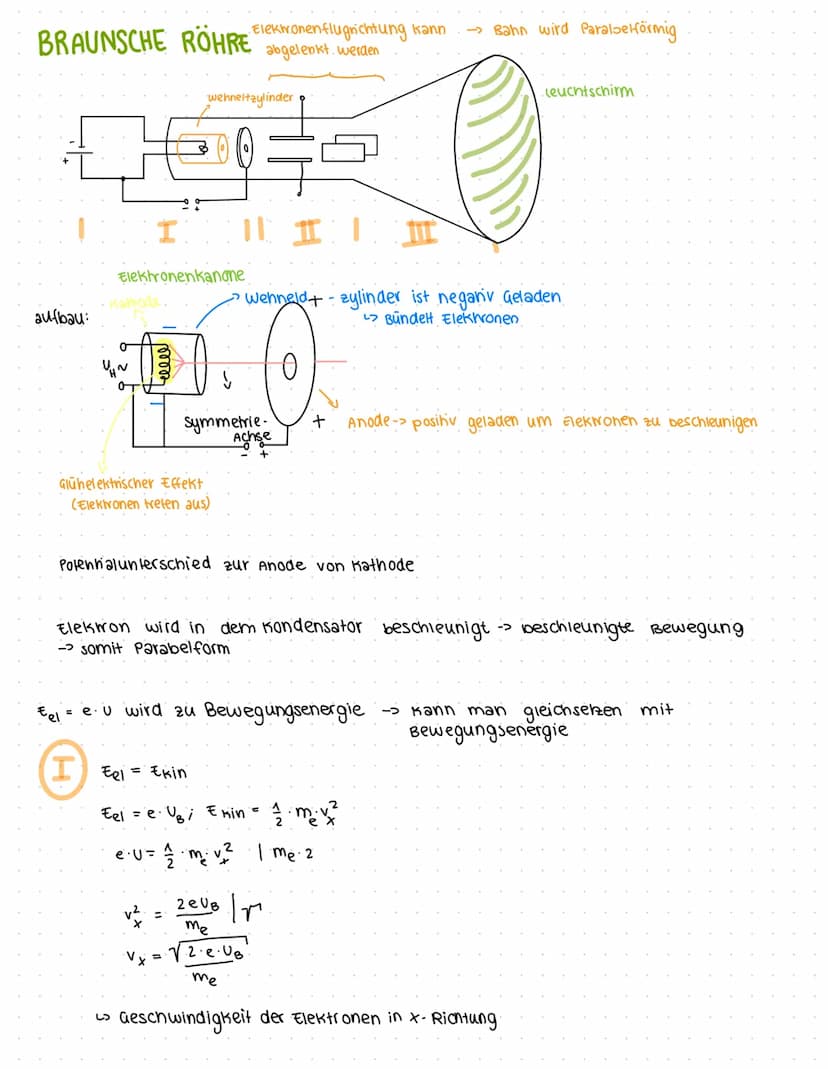 BRAUNSCHE RÖHRE
Elektronenflugrichtung kann → Bahn wird Parabelförmig
abgelenkt werden
Wehneltzylinder
Leuchtschirm
-
+
- +
I
II
III
Elektronenkanone
Kathode
Wehneld + - zylinder ist negativ Geladen
↳ Bündelt Elektronen
aufbau:
U_H ~
Symmetrie-
Achse
- +
+
Anode -> positiv geladen um Elektronen zu beschleunigen
Glühelektrischer Effekt
(Elektronen treten aus)
Potentialunterschied zur Anode von Kathode
Elektron wird in dem Kondensator beschleunigt -> beschleunigte Bewegung
-> somit Parabelform
E_el = e · U wird zu Bewegungsenergie -> kann man gleichsetzen mit
Bewegungsenergie
I
E_el = E_kin
E_el = e · U_B ; E_kin = 1/2 · m_e · v_x^2
e · U = 1/2 · m_e · v_x^2 | m_e · 2
v_x^2 = 2eU_B / m_e | √
v_x = √(2 · e · U_B / m_e)
↳ Geschwindigkeit der Elektronen in x-Richtung